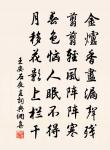 金爐香盡漏聲殘
翦翦輕風陣陣寒
春色惱人眠不得
月移花影上欄干
王安石夜直詞典網集